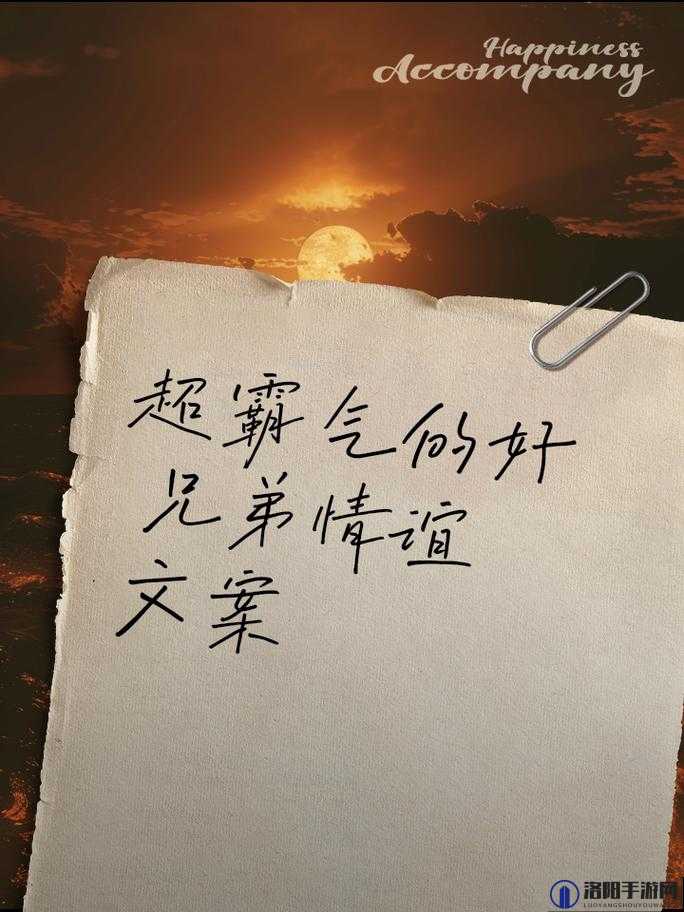 Happiness
Accompany
超霸气的好
兄弟情谊
文案
洛阳手游网
LUOYANGSHOUYOUWANG